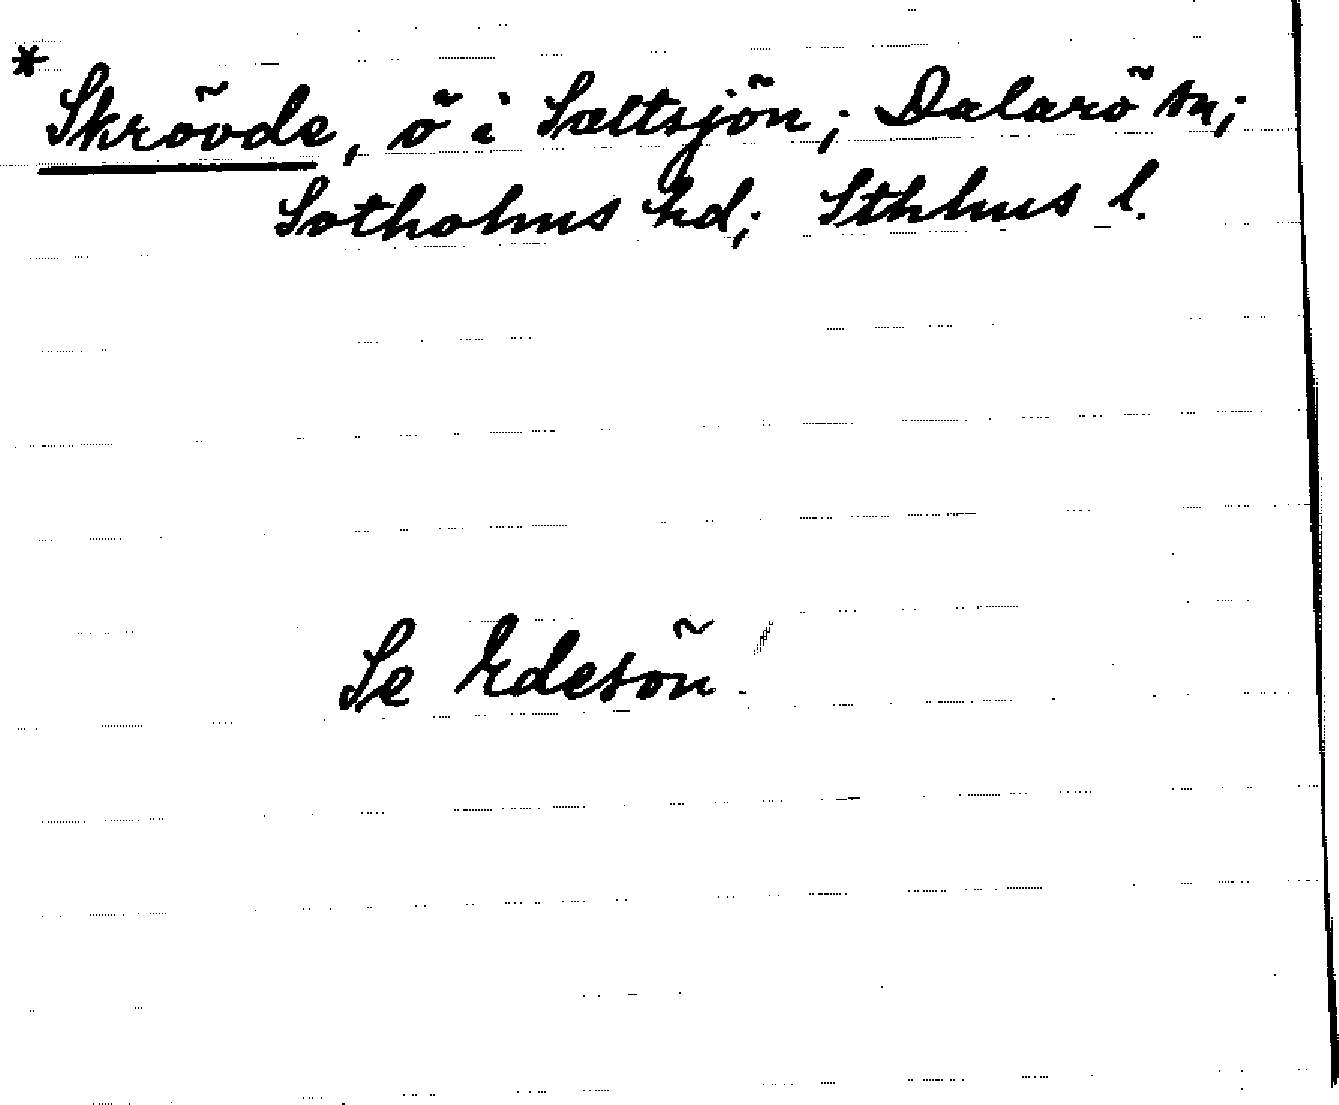 * Skrövde, ö i Saltsjön; Dalarö sn;
Sotholms hd; Sthlms l.
Se Edesön!